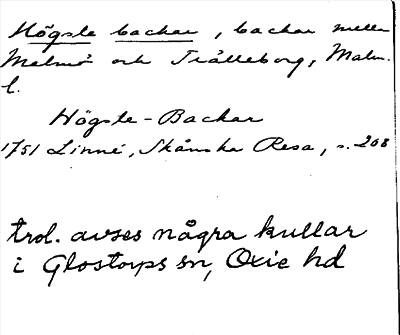 Högste backar, backar mellan
Malmö och Trälleborg, Malm.
l.
Högste-Backar
1751 Linné, Skånska Resa, s. 208
trol. avses några kullar
i Glostorps sn, Oxie hd